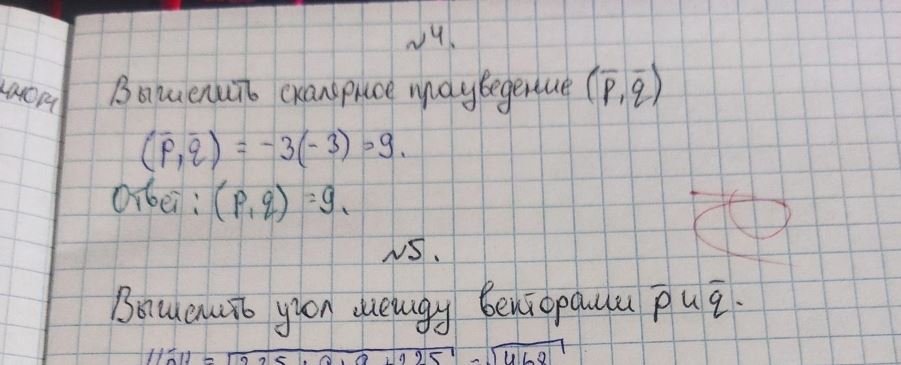 №4.
Вычислить скалярное произведение (p̄, q̄)
(p̄, q̄) = -3(-3) = 9.
Ответ: (p, q) = 9.
№5.
Вычислить угол между векторами p̄ и q̄.